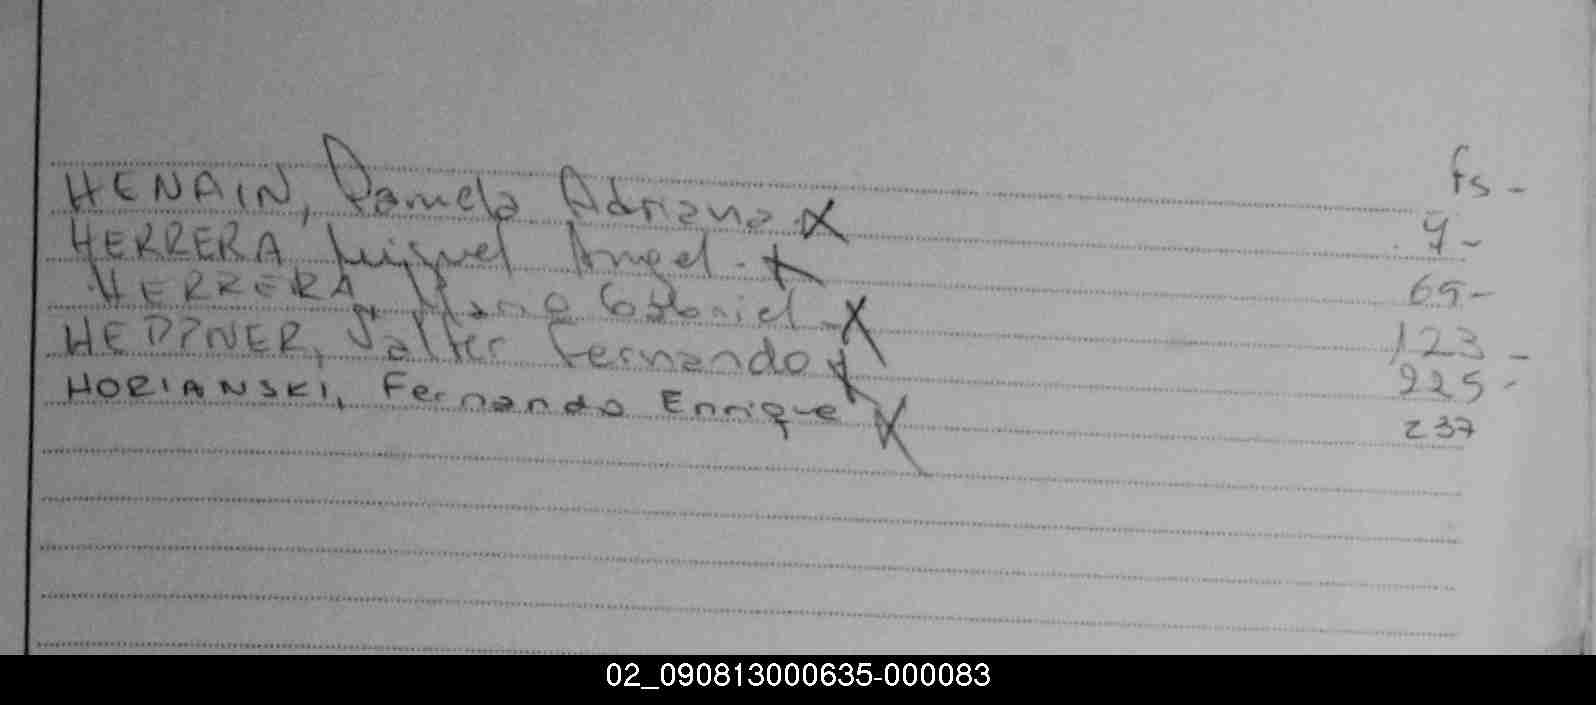 fs-
HENAIN, Pamela Adriana X 9-
HERRERA, Miguel Angel X 69-
HERRERA Mario Gabriel X 123-
HEPPNER, Walter Fernando X 225-
HORIANSKI, Fernando Enrique X 237
02_090813000635-000083